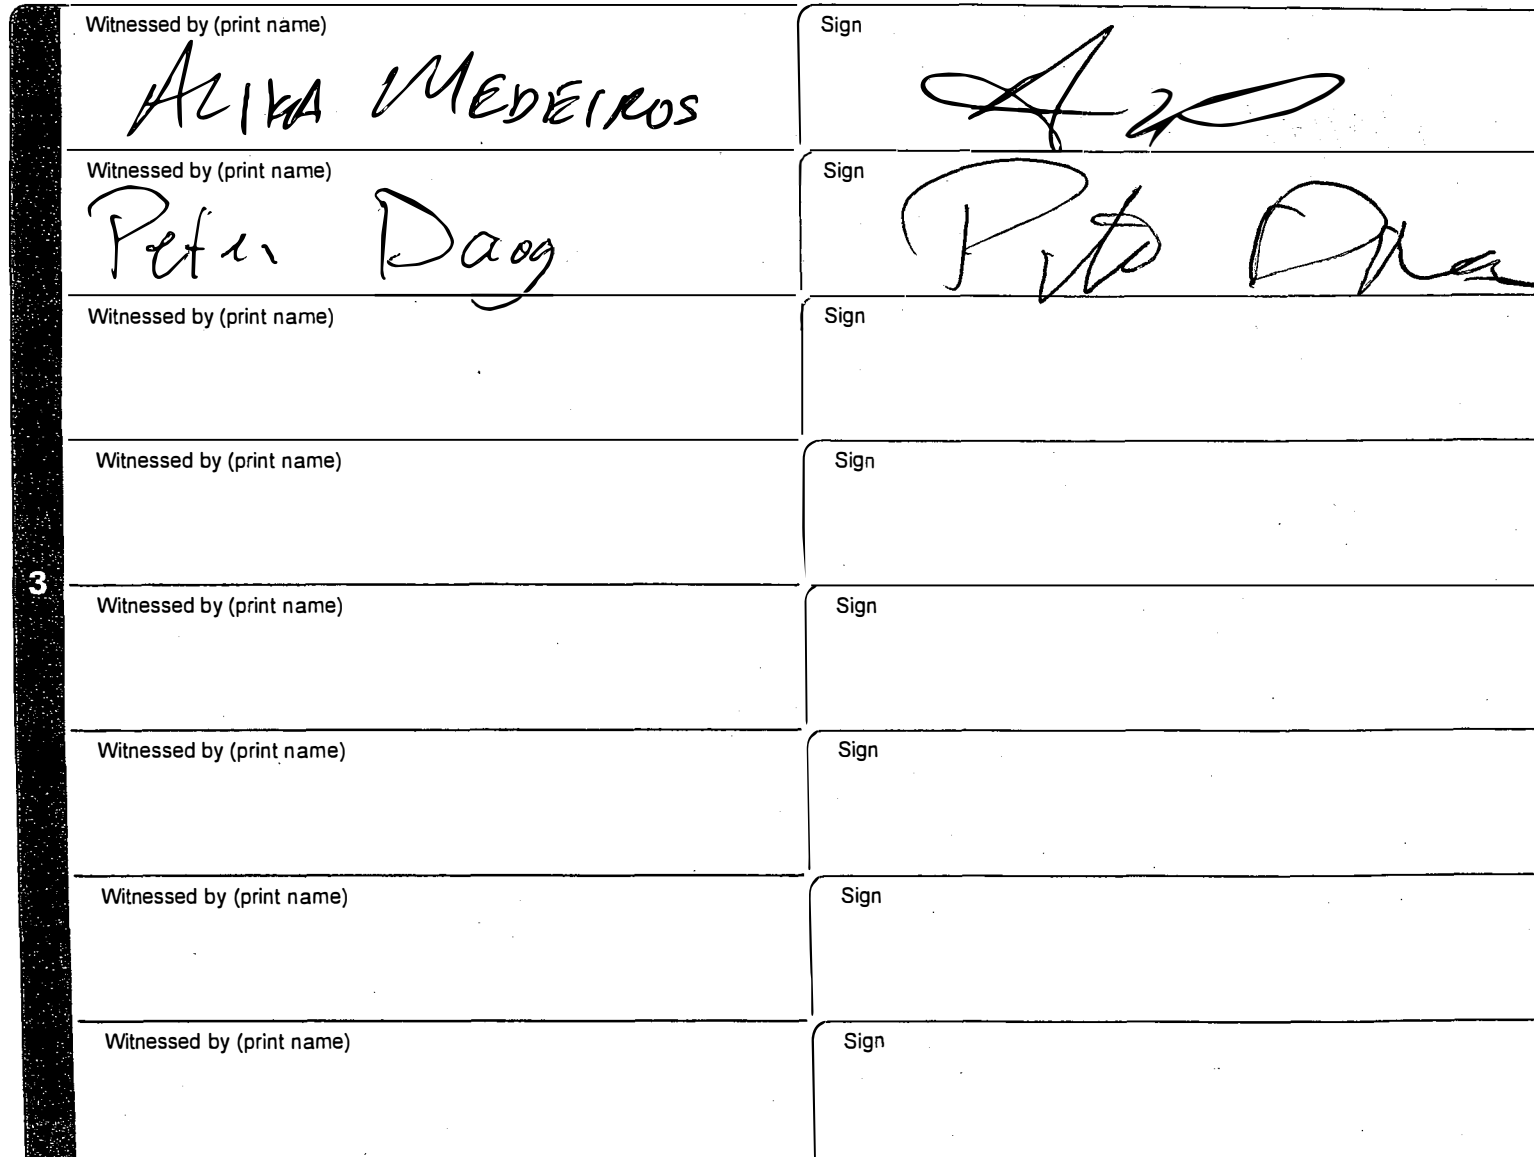 Witnessed by (print name) Sign
ALIKA MEDEIROS
Witnessed by (print name) Sign
Peter Daog
Witnessed by (print name) Sign
Witnessed by (print name) Sign
3
Witnessed by (print name) Sign
Witnessed by (print name) Sign
Witnessed by (print name) Sign
Witnessed by (print name) Sign